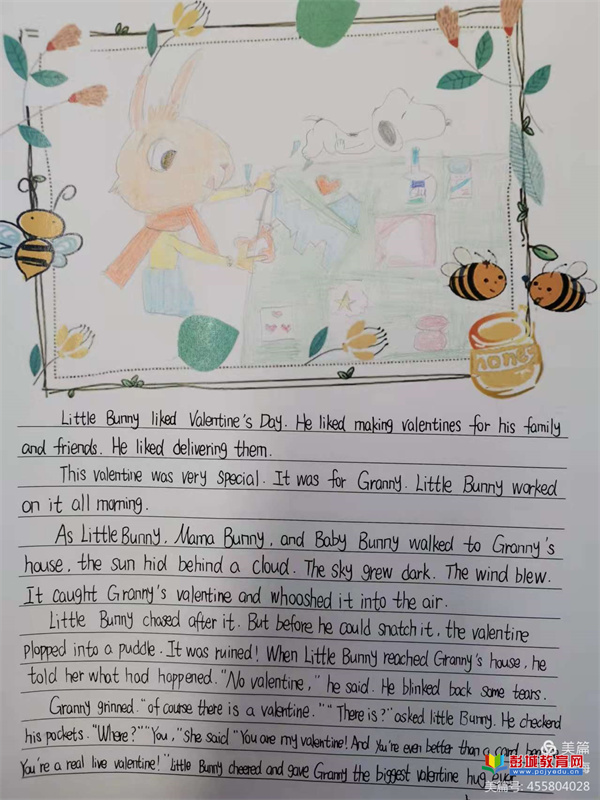 honey
Little Bunny liked Valentine's Day. He liked making valentines for his family
and friends. He liked delivering them.
This valentine was very special. It was for Granny. Little Bunny worked
on it all morning.
As Little Bunny, Mama Bunny, and Baby Bunny walked to Granny's
house, the sun hid behind a cloud. The sky grew dark. The wind blew.
It caught Granny's valentine and whooshed it into the air.
Little Bunny chased after it. But before he could snatch it, the valentine
plopped into a puddle. It was ruined! When Little Bunny reached Granny's house, he
told her what had happened. "No valentine," he said. He blinked back some tears.
Granny grinned. "of course there is a valentine." "There is?" asked little Bunny. He checkend
his pockets. "Where?" "You," she said "You are my valentine! And You're even better than a card
You're a real live valentine!" Little Bunny cheered and gave Granny the biggest valentine hug ever
美篇
彭城教育网
www.pcjyedu.cn
美篇号: 455804028